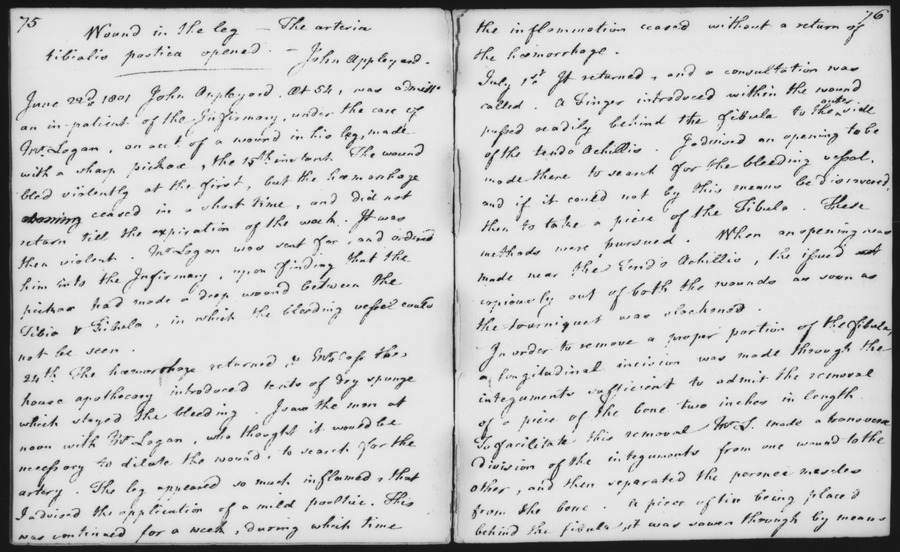 75
Wound in the leg — The arteria
tibialis postica opened. — John Appleyard.
June 22d 1801 John Appleyard. Æt 54, was admitt
an in-patient of the Infirmary, under the care of
Mr. Logan, on acct. of a wound in his leg, made
with a sharp pickax, the 15th instant. The wound
bled violently at the first, but the hæmorrhage
ceased in a short time, and did not
return till the expiration of the week. It was
then violent. Mr Logan was sent for, and ordered
him into the Infirmary, upon finding that the
pickax had made a deep wound between the
Tibia & Fibula, in which the bleeding vessel could
not be seen.
24th The hæmorrhage returned, & Mr the
house apothecary introduced tents of dry sponge
which stayed the bleeding. I saw the man at
noon with Mr Logan, who thought it would be
necessary to dilate the wound, to search for the
artery. The leg appeared so much inflamed, that
I advised the application of a mild poultice. This
was continued for a week, during which time
76
the inflammation ceased without a return of
the hæmorrhage.
July 1st It returned, and a consultation was
called. A Finger introduced within the wound
passed readily behind the fibula to the outer side
of the tendo Achillis. I advised an opening to be
made there to search for the bleeding vessel,
and if it could not by this means be discovered,
then to take a piece of the Fibula. These
methods were pursued. When an opening was
made near the Tendo Achillis, the issued
copiously out of both the wounds as soon as
the tourniquet was slackened.
In order to remove a proper portion of the fibula,
a longitudinal incision was made through the
integuments sufficient to admit the removal
of a piece of the bone two inches in length.
To facilitate this removal Mr L. made a transverse
Division of the integuments from one wound to the
other, and then separated the peronæ muscles
from the bone. A piece of tin being placed
behind the fibula it was sawn through by means